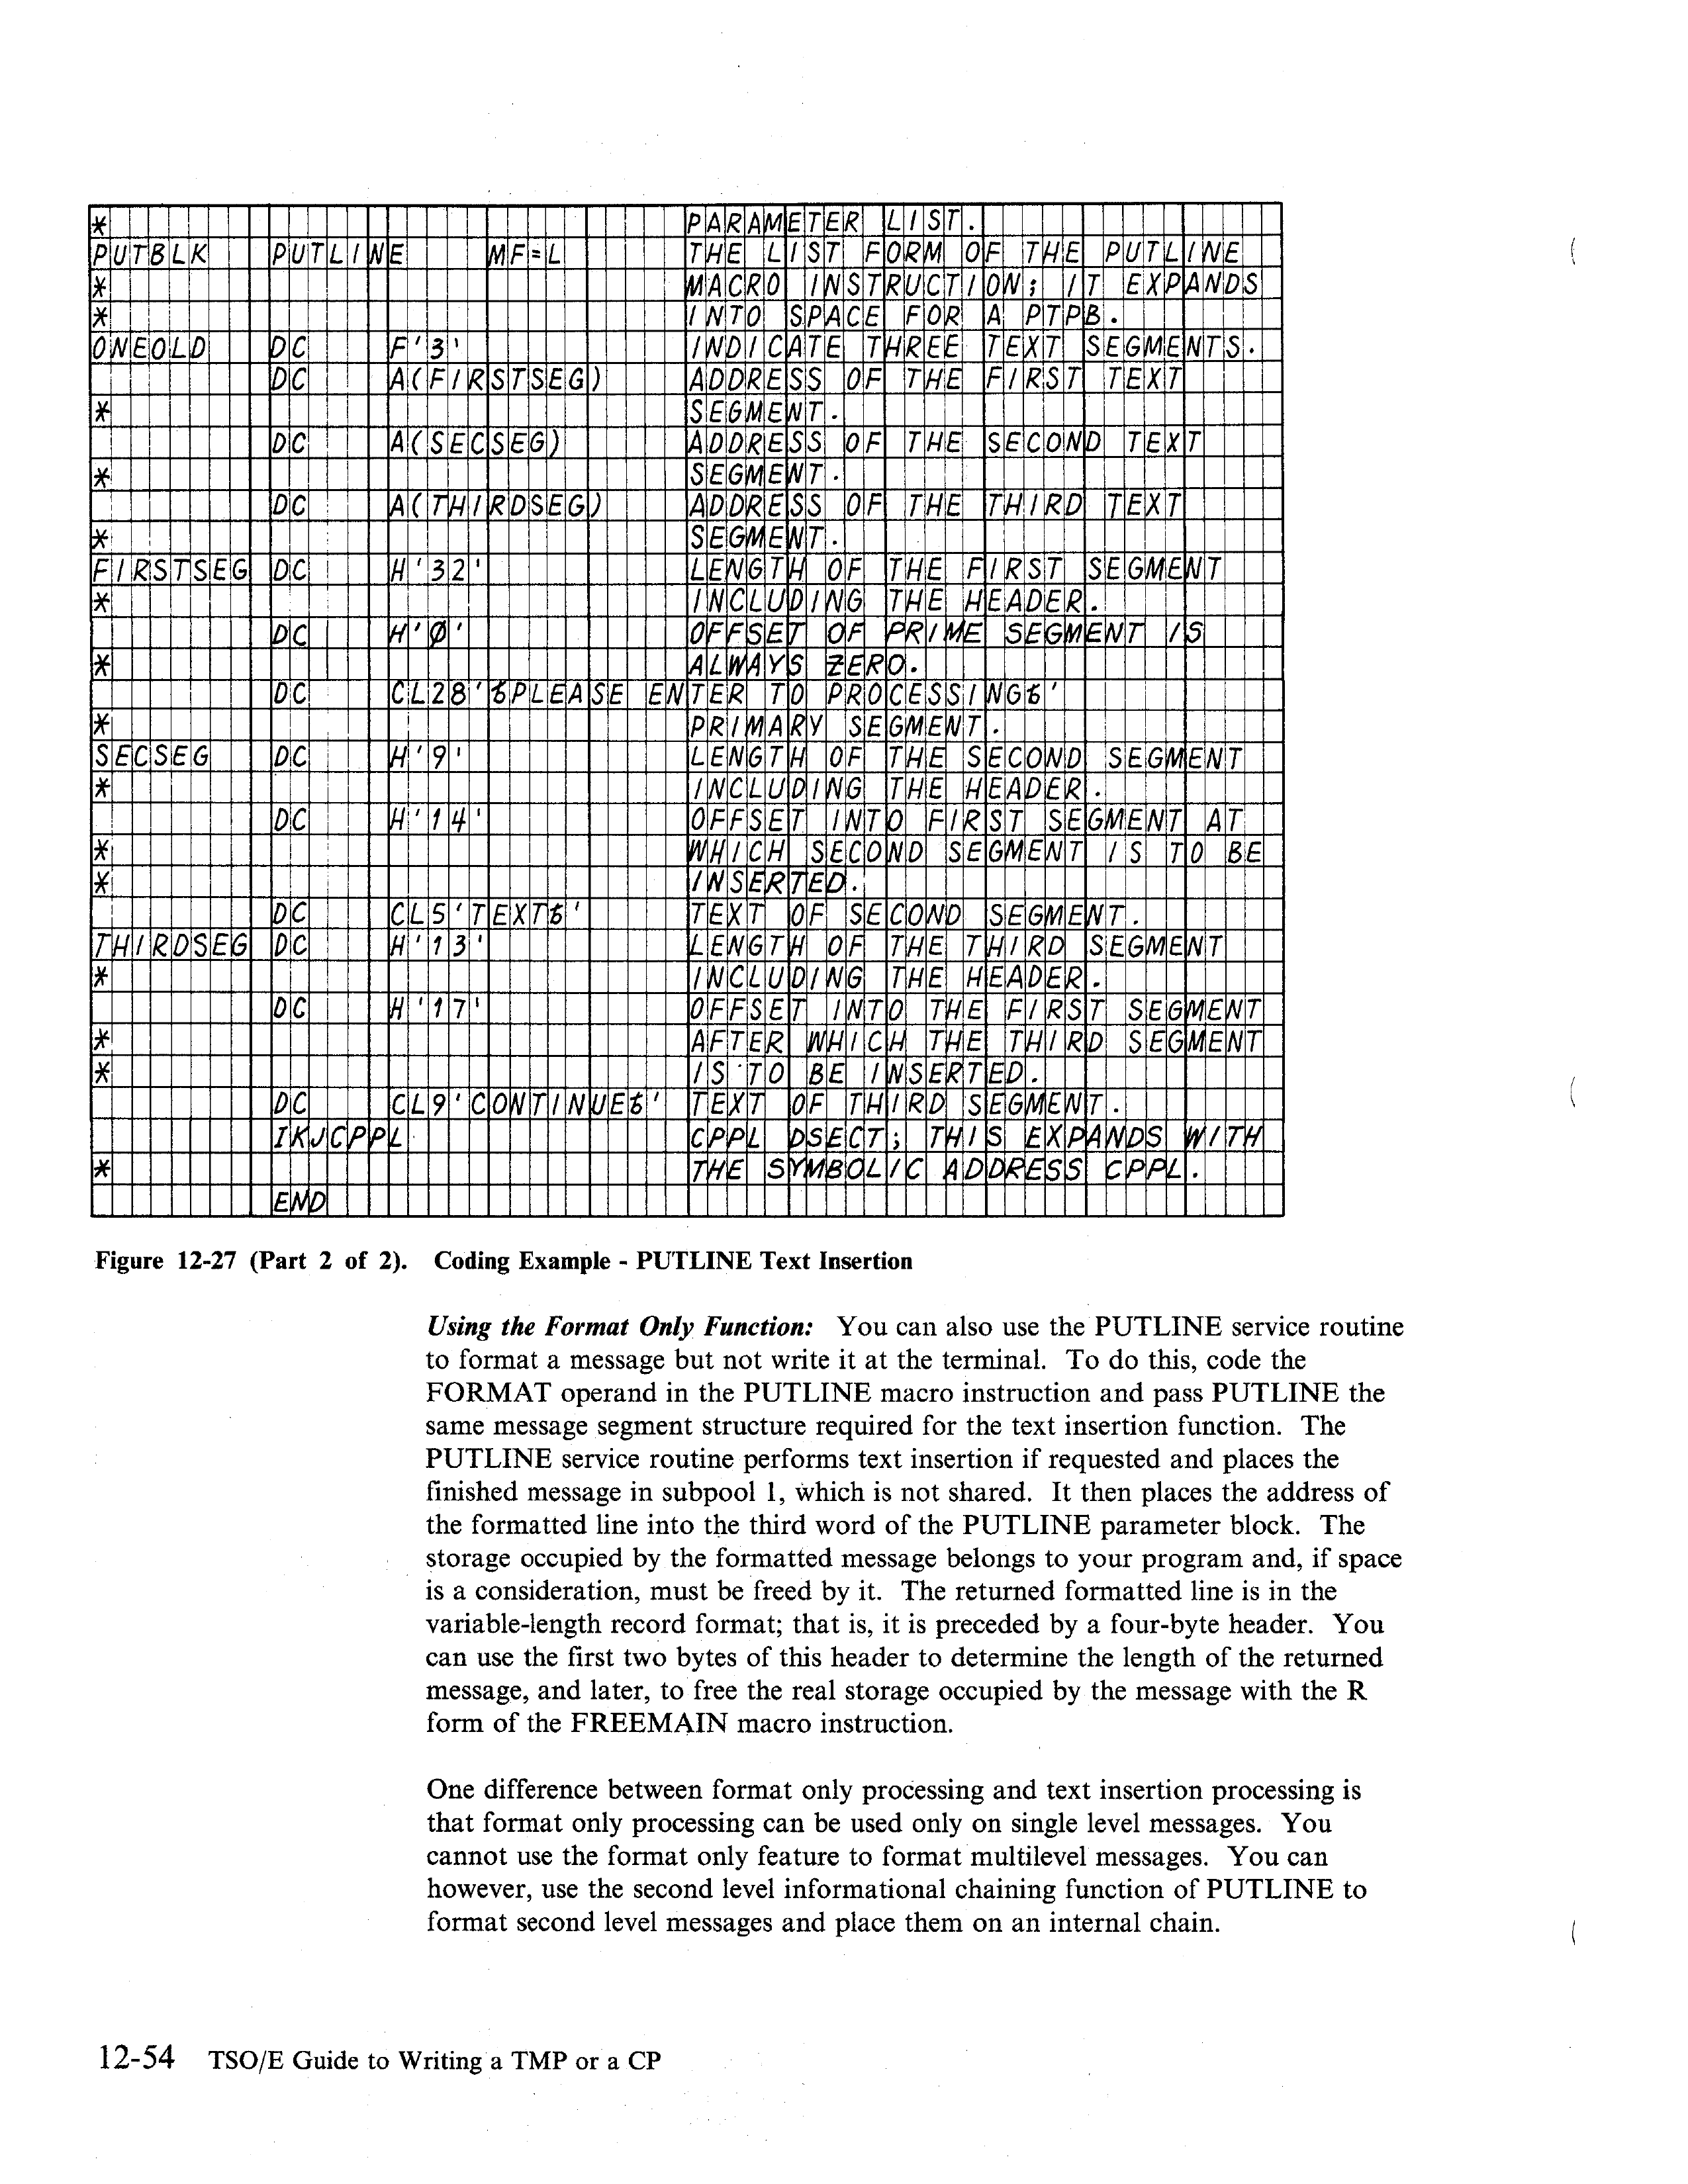 * PARAMETER LIST.
PUTBLK PUTLINE MF=L THE LIST FORM OF THE PUTLINE
* MACRO INSTRUCTION; IT EXPANDS
* INTO SPACE FOR A PTPB.
ONEOLD DC F'3' INDICATE THREE TEXT SEGMENTS.
DC A(FIRSTSEG) ADDRESS OF THE FIRST TEXT
* SEGMENT.
DC A(SECSEG) ADDRESS OF THE SECOND TEXT
* SEGMENT.
DC A(THIRDSEG) ADDRESS OF THE THIRD TEXT
* SEGMENT.
FIRSTSEG DC H'32' LENGTH OF THE FIRST SEGMENT
* INCLUDING THE HEADER.
DC H'0' OFFSET OF PRIME SEGMENT IS
* ALWAYS ZERO.
DC CL28'ƀPLEASE ENTER TO PROCESSINGƀ'
* PRIMARY SEGMENT.
SECSEG DC H'9' LENGTH OF THE SECOND SEGMENT
* INCLUDING THE HEADER.
DC H'14' OFFSET INTO FIRST SEGMENT AT
* WHICH SECOND SEGMENT IS TO BE
* INSERTED.
DC CL5'TEXTƀ' TEXT OF SECOND SEGMENT.
THIRDSEG DC H'13' LENGTH OF THE THIRD SEGMENT
* INCLUDING THE HEADER.
DC H'17' OFFSET INTO THE FIRST SEGMENT
* AFTER WHICH THE THIRD SEGMENT
* IS TO BE INSERTED.
DC CL9'CONTINUEƀ' TEXT OF THIRD SEGMENT.
IKJCPPL CPPL DSECT; THIS EXPANDS WITH
* THE SYMBOLIC ADDRESS CPPL.
END
Figure 12-27 (Part 2 of 2). Coding Example - PUTLINE Text Insertion
Using the Format Only Function: You can also use the PUTLINE service routine
to format a message but not write it at the terminal. To do this, code the
FORMAT operand in the PUTLINE macro instruction and pass PUTLINE the
same message segment structure required for the text insertion function. The
PUTLINE service routine performs text insertion if requested and places the
finished message in subpool 1, which is not shared. It then places the address of
the formatted line into the third word of the PUTLINE parameter block. The
storage occupied by the formatted message belongs to your program and, if space
is a consideration, must be freed by it. The returned formatted line is in the
variable-length record format; that is, it is preceded by a four-byte header. You
can use the first two bytes of this header to determine the length of the returned
message, and later, to free the real storage occupied by the message with the R
form of the FREEMAIN macro instruction.
One difference between format only processing and text insertion processing is
that format only processing can be used only on single level messages. You
cannot use the format only feature to format multilevel messages. You can
however, use the second level informational chaining function of PUTLINE to
format second level messages and place them on an internal chain.
12-54 TSO/E Guide to Writing a TMP or a CP